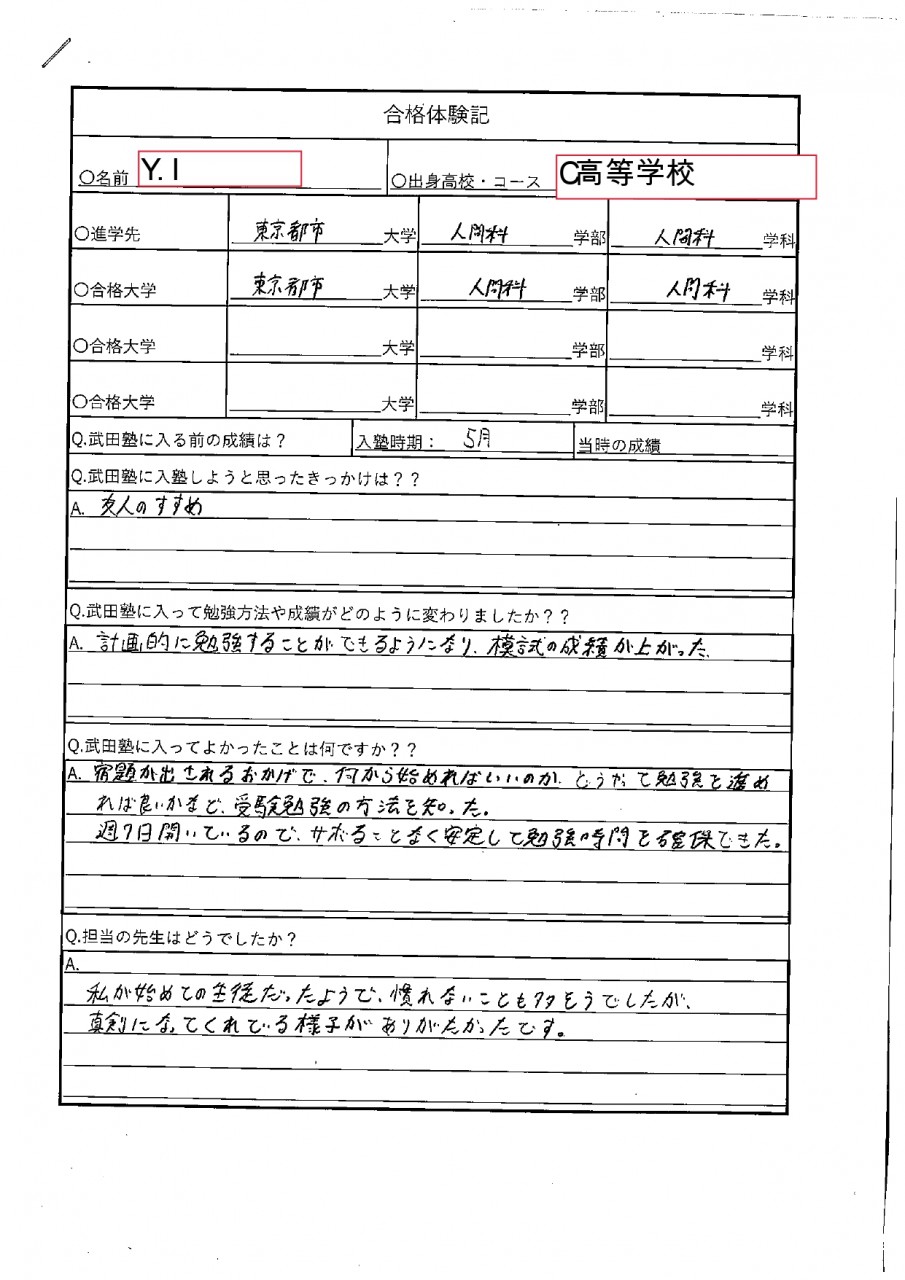 合格体験記
○名前 Y. I ○出身高校・コース C高等学校
○進学先 東京都市大学 人間科学部 人間科学科
○合格大学 東京都市大学 人間科学部 人間科学科
○合格大学 大学 学部 学科
○合格大学 大学 学部 学科
Q.武田塾に入る前の成績は? 入塾時期: 5月 当時の成績
Q.武田塾に入塾しようと思ったきっかけは??
A. 友人のすすめ
Q.武田塾に入って勉強方法や成績がどのように変わりましたか??
A. 計画的に勉強することができるようになり、模試の成績が上がった。
Q.武田塾に入ってよかったことは何ですか??
A. 宿題が出されるおかげで、何から始めればいいのか、どうやって勉強を進め
れば良いかまで、受験勉強の方法を知った。
週7日開いているので、サボることなく安定して勉強時間を確保できた。
Q.担当の先生はどうでしたか?
A.
私が始めての生徒だったようで、慣れないことも多そうでしたが、
真剣になってくれている様子がありがたかったです。